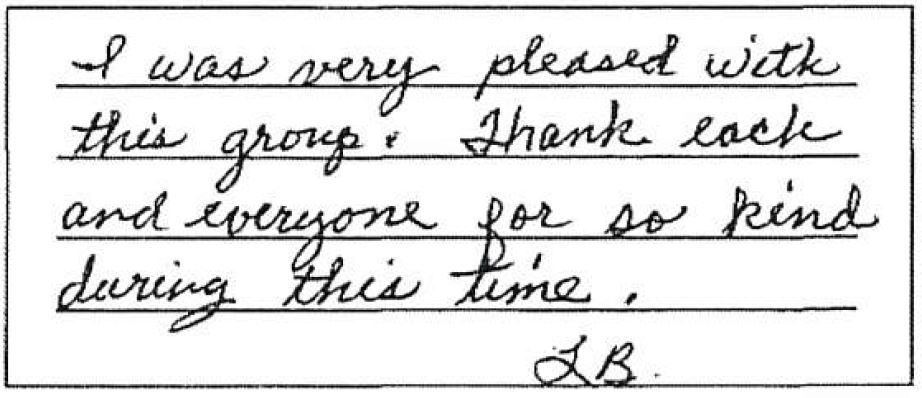 I was very pleased with
this group. Thank each
and everyone for so kind
during this time.
LB.